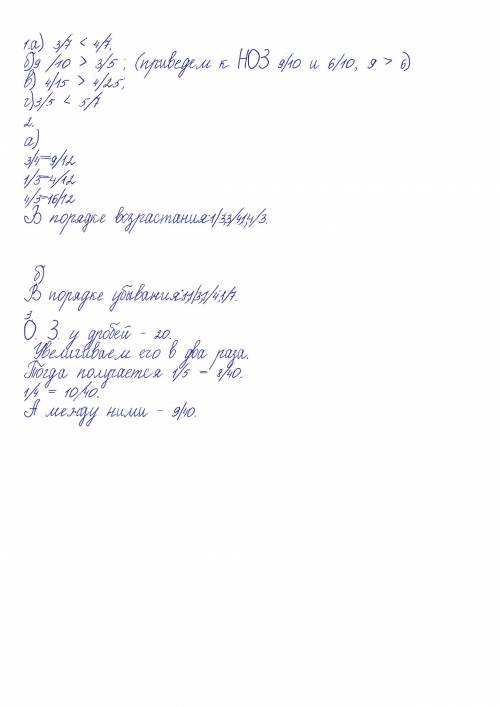 1.а) 3/7 < 4/7,
б)9 /10 > 3/5 ; (приведем к НОЗ 9/10 и 6/10, 9 > 6)
в) 4/15 > 4/25,
г)3/5 < 5/7
2.
а)
3/4=9/12
1/3=4/12
4/3=16/12
В порядке возрастания:1/3,3/4,1,4/3.
б)
В порядке убывания:
3
О. З. у дробей - 20.
Увеличиваем его в два раза.
Тогда получается 1/5 - 8/40.
1/4 = 10/40.
А между ними - 9/40.